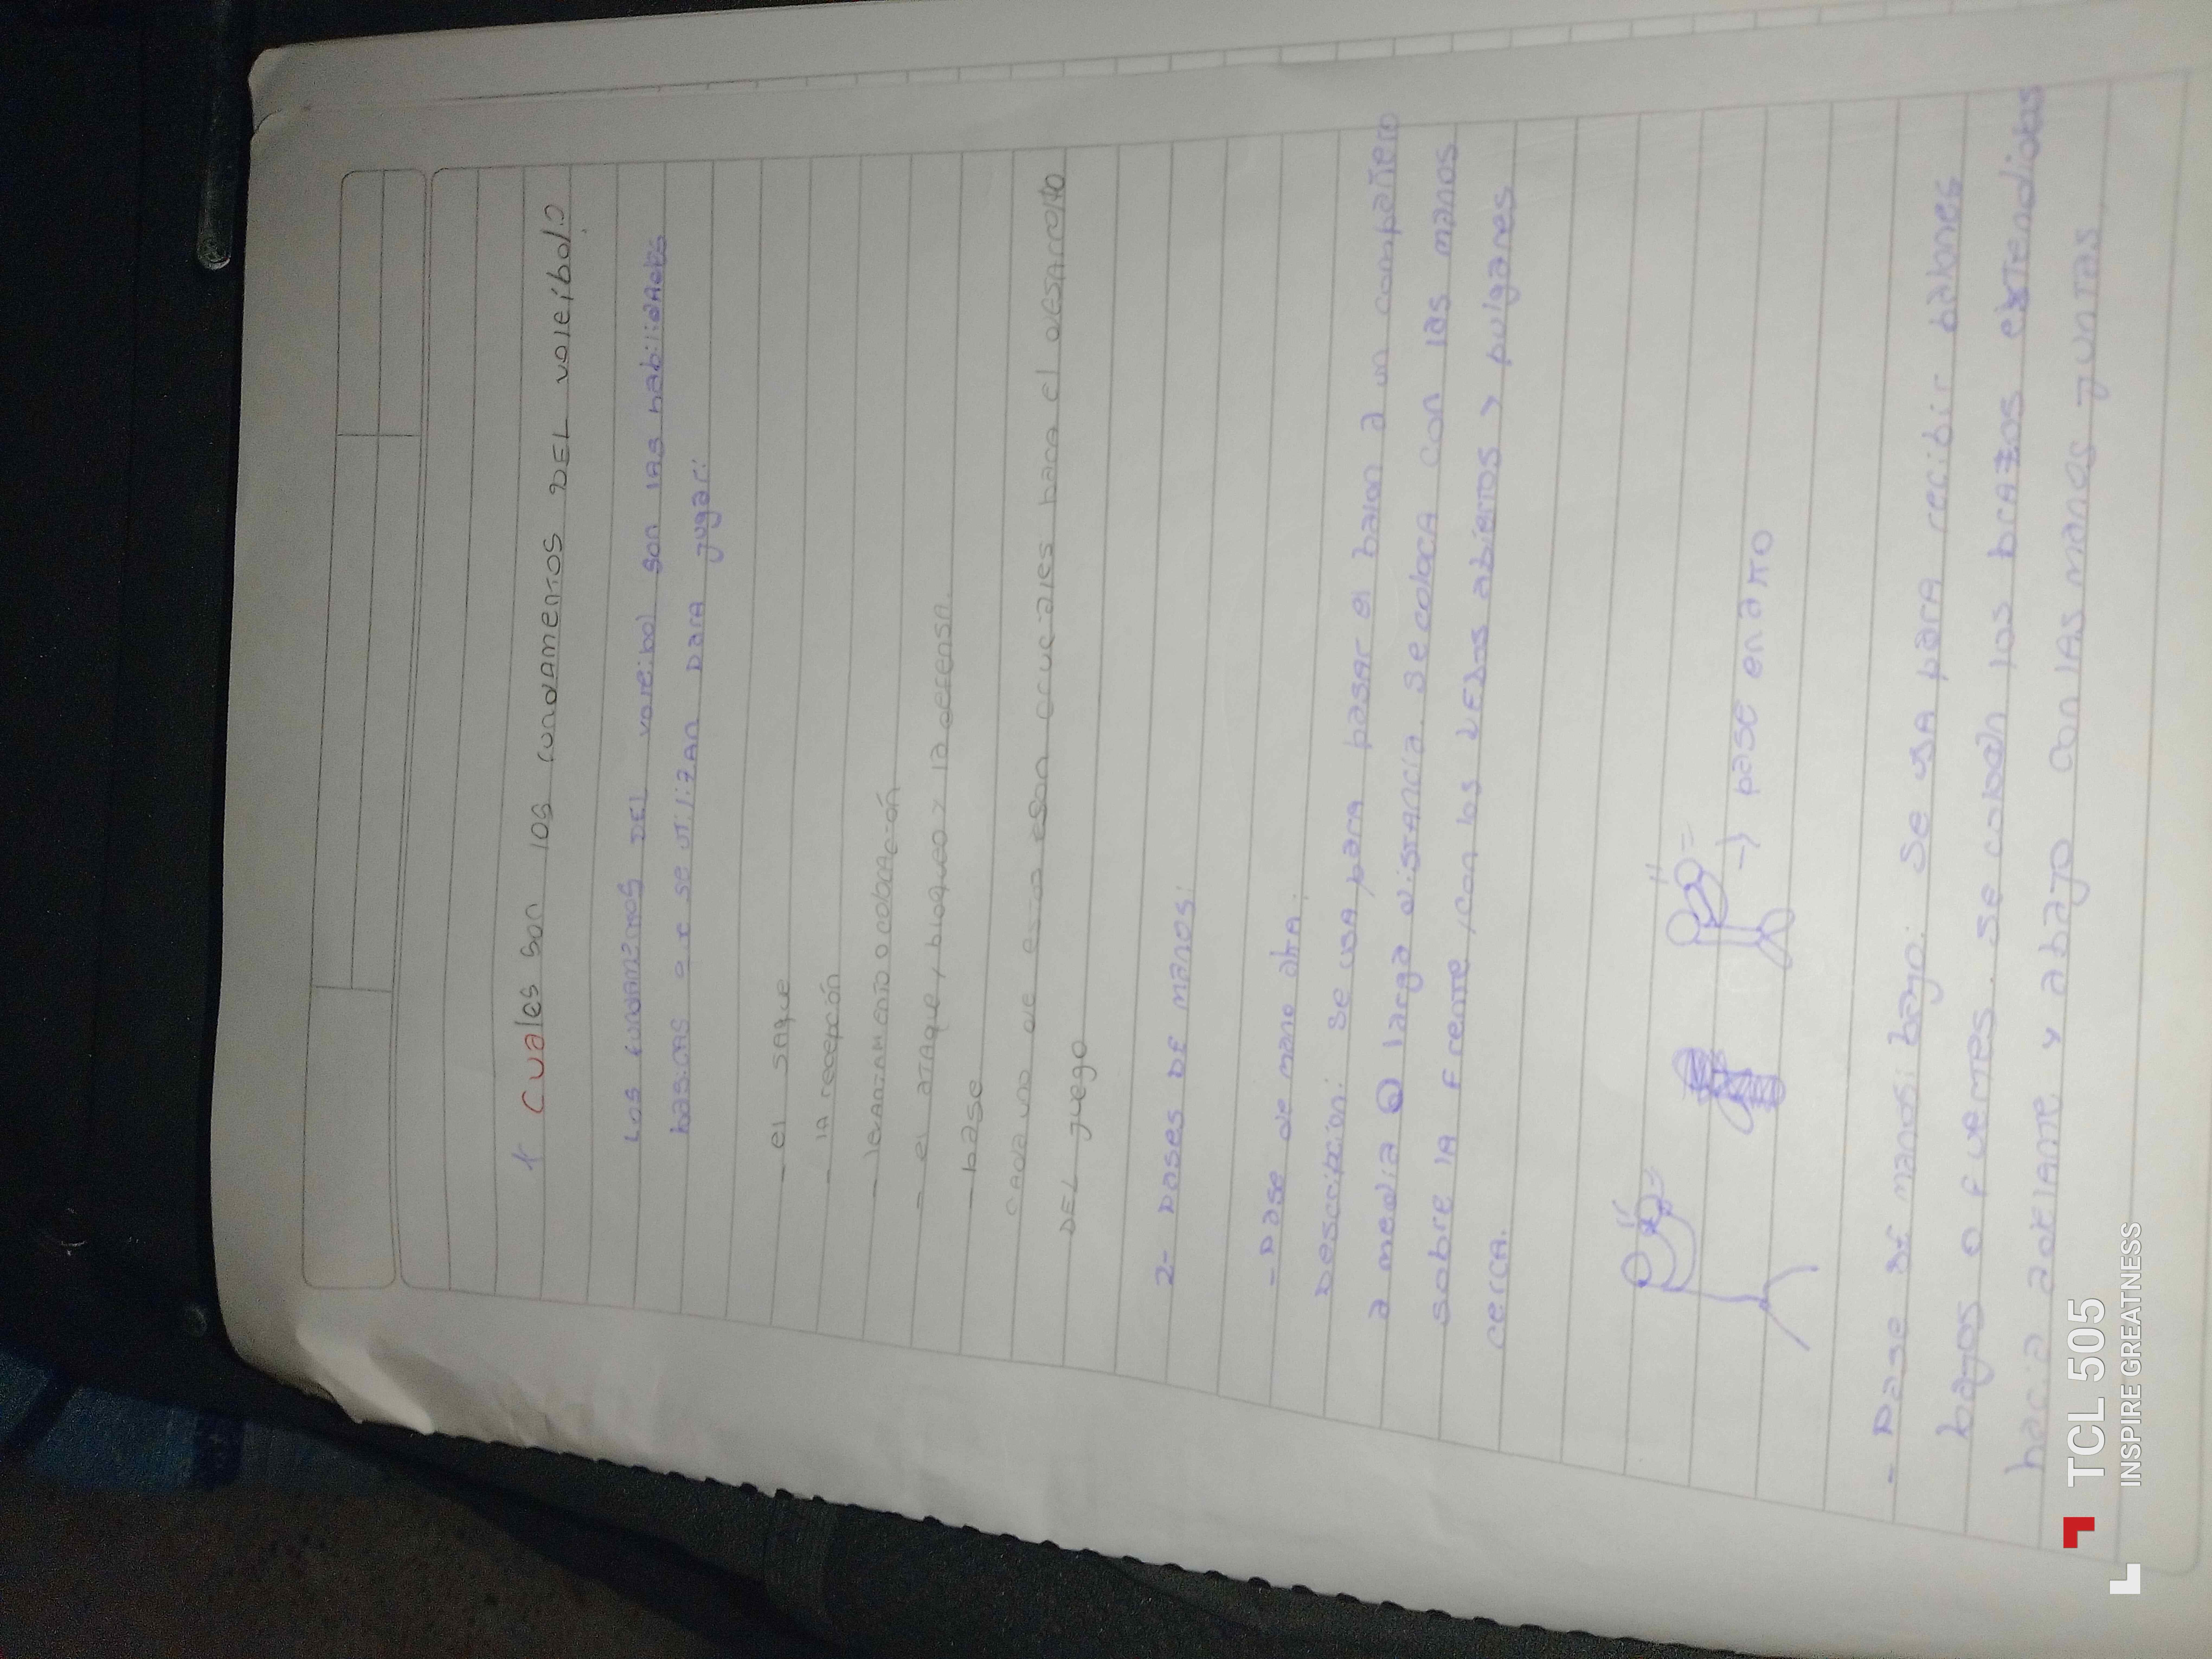 * Cuales son los fundamentos DEL voleibol?
Los fundamentos DEL voleibol son las habilidades
basicas que se utilizan para jugar:
- el saque
- la recepción
- levantamiento o colocación
- el ataque, bloqueo y la defensa.
- base
Cada uno de estos son cruciales para el desarrollo
DEL juego
2- Poses DE manos:
- Pase de mano alta:
Descripcion: Se usa para pasar el balon a un compañero
a media o larga distancia. Se coloca con las manos
sobre la frente, con los DEDos abiertos y pulgares
cerca.
→ pase en alto
- Pase de manos bajo: Se usa para recibir balones
bajos o fuertes. Se colocan los brazos extendidos
hacia adelante y abajo con las manos juntas
TCL 505
INSPIRE GREATNESS